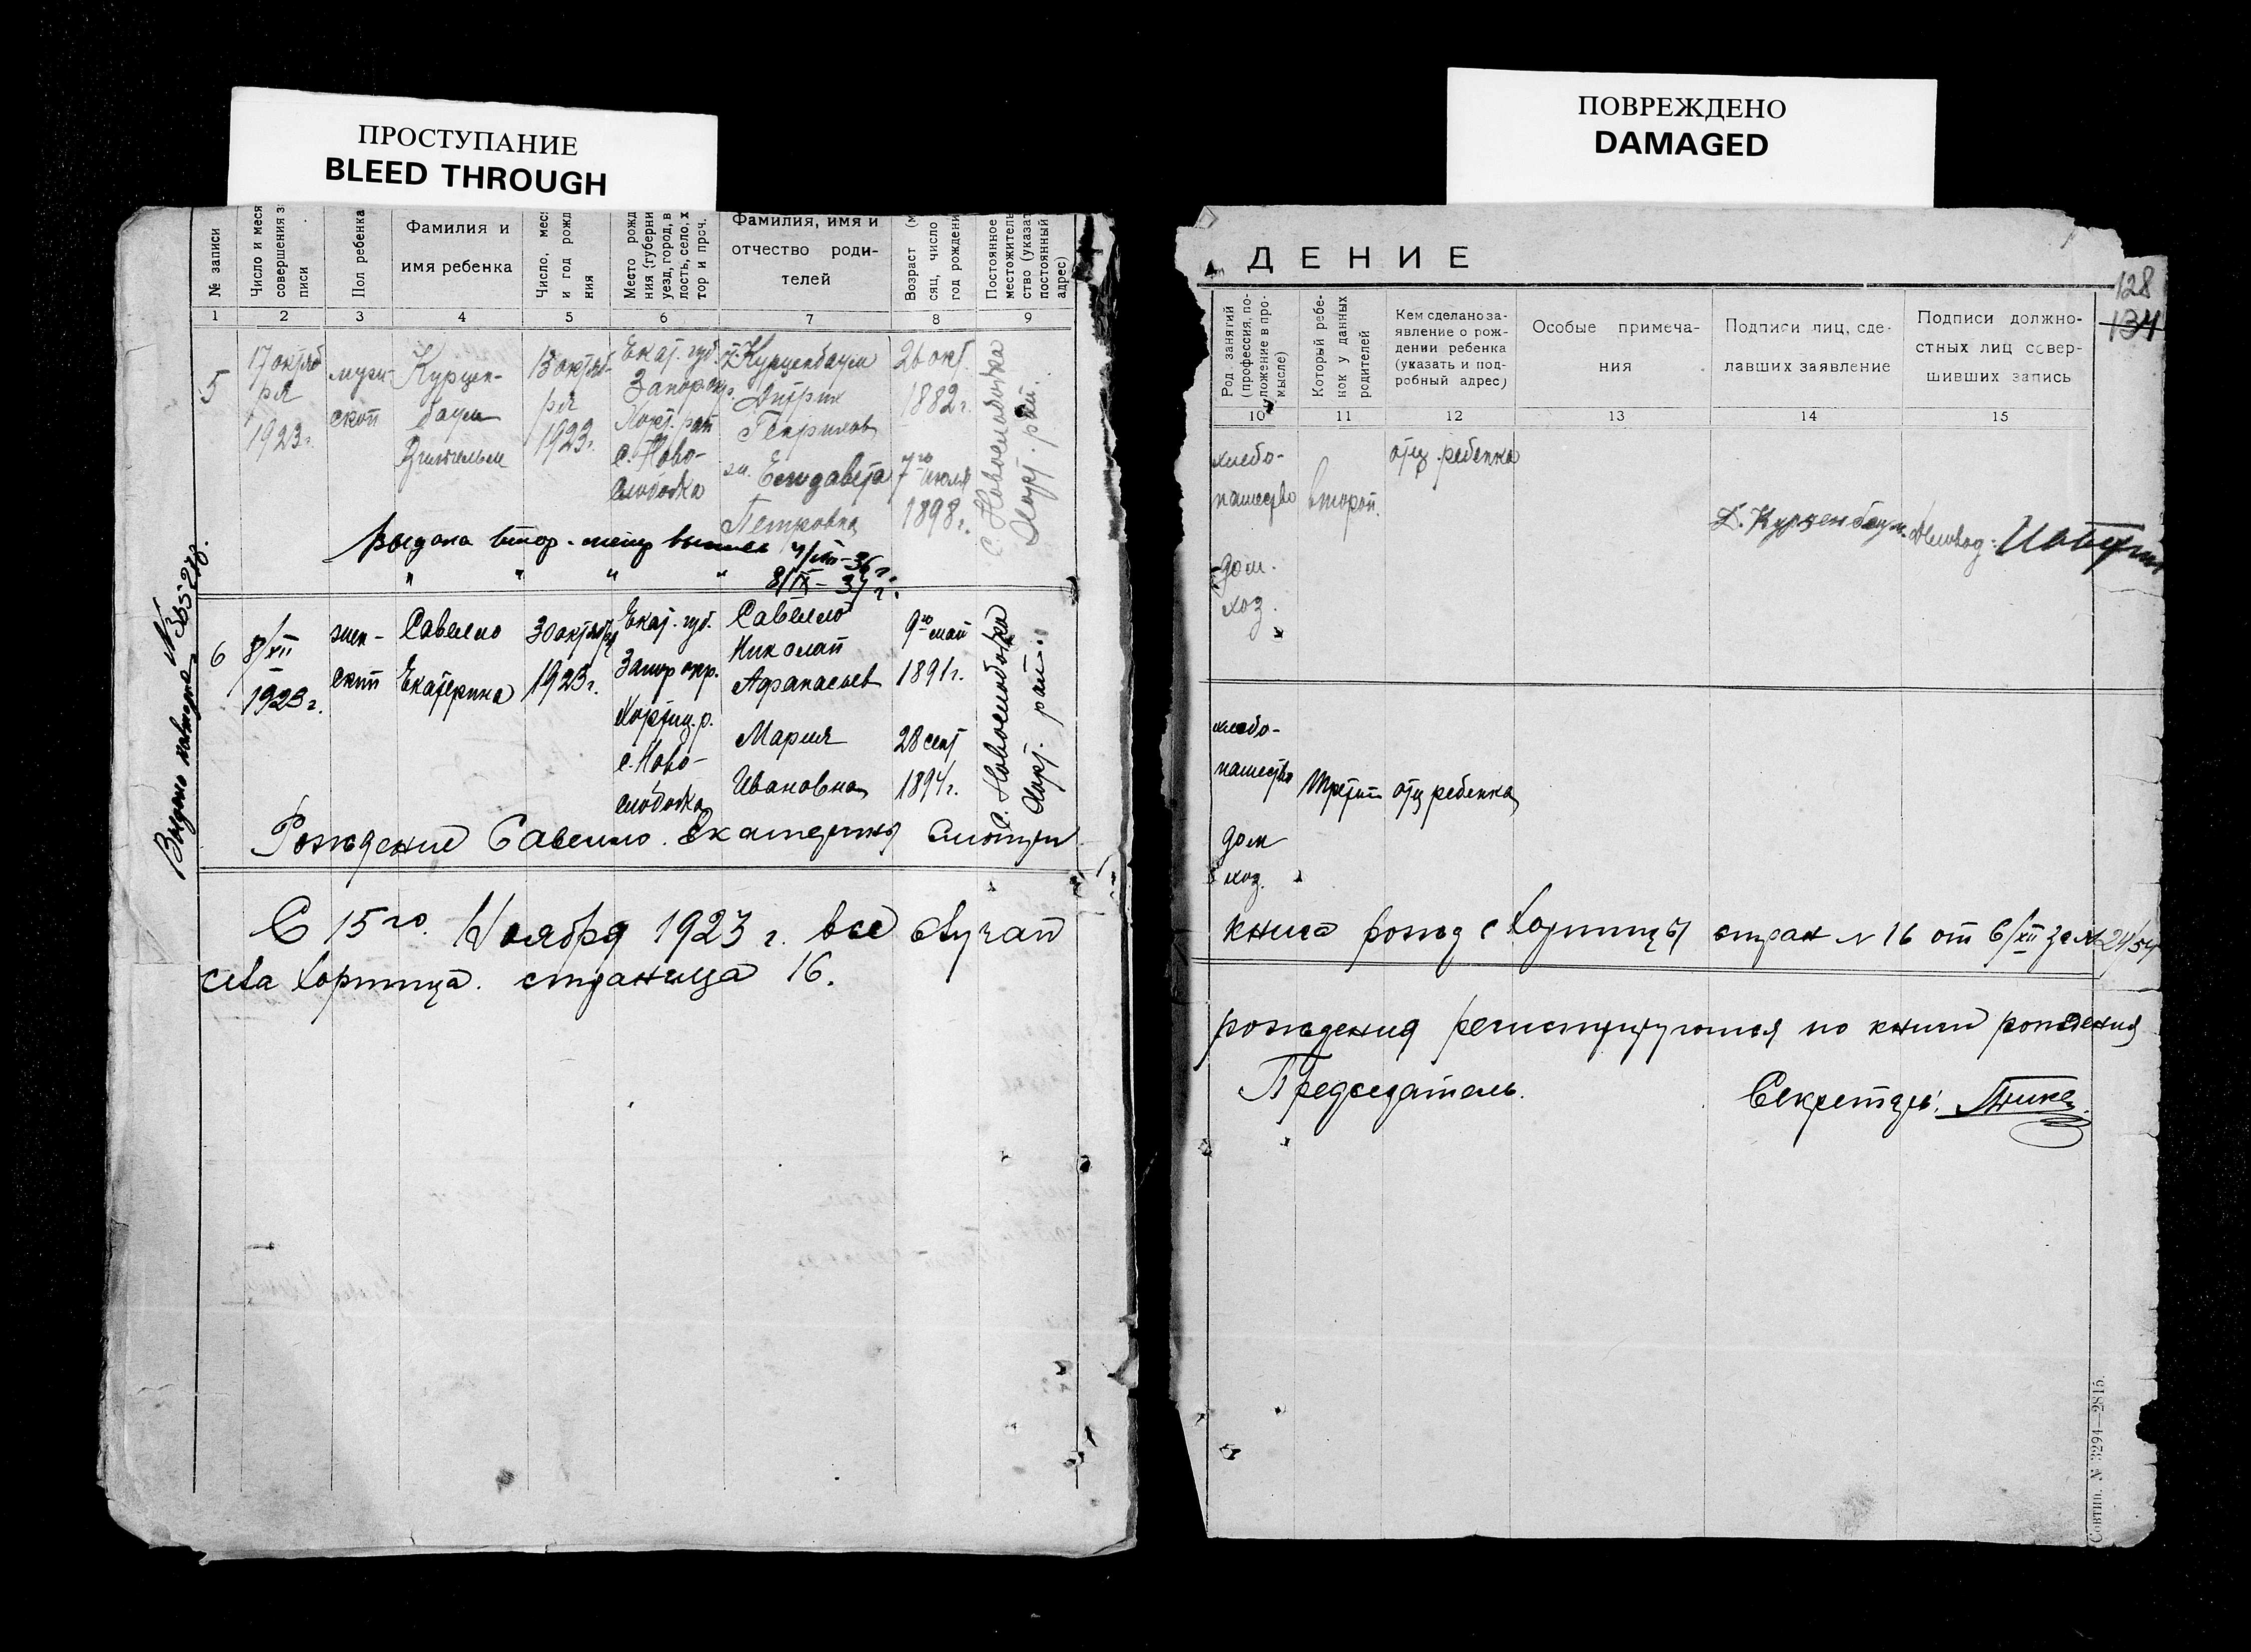 ПРОСТУПАНИЕ
BLEED THROUGH
ПОВРЕЖДЕНО
DAMAGED
№ записи
Число и меся
совершения за
писи
Пол ребенка
Фамилия и
имя ребенка
Число, мес
и год рожд
ния
Место рожд
ния (губерни
уезд, город, в
лость, село, х
тор и проч.
Фамилия, имя и
отчество роди-
телей
Возраст (м
сяц, число
год рождени
Постоянное
местожитель
ство (указат
постоянный
адрес)
1 2 3 4 5 6 7 8 9
5
17 октяб
ря
1923г.
муж-
ской
Курцен-
баум
Вильгельм
15 октяб-
ря
1923г.
Екат. губ.
Запор окр.
Хорт. рай
с. Ново-
слободка
от. Курценбаум
Дитрих
Генрихов
м. Елизавета
Петровна
26 окт.
1882г.
7го июля
1898г.
с. Новослободка
Хорт. рай.
36 г.
" " " " 8/IX - 37 г.
6
8/XII
1923 г.
жен-
ский
Савелло
Екатерина
30 октября
1923г.
Екат. губ.
Запор окр.
Хортиц. р.
с. Ново-
слободка
Савелло
Николай
Афанасьев
Мария
Ивановна
9го май
1891г.
28 сент
1894г.
с. Новослободка
Хорт. рай.
Выдано повторно № 365278.
Рождение Савелло Екатерины смотри
С 15го Ноября 1923 г. все случаи
села Хортица. страница 16.
ДЕНИЕ
128
134
Род занятий
(профессия, по-
ложение в про-
мысле)
Который ребе-
нок у данных
родителей
Кем сделано за-
явление о рож-
дении ребенка
(указать и под-
робный адрес)
Особые примеча-
ния
Подписи лиц, сде-
лавших заявление
Подписи должно-
стных лиц совер-
шивших запись
10 11 12 13 14 15
хлебо-
пашество
второй.
отец ребенка
Д. Курценбаум.
дом.
хоз.
хлебо-
пашество
Третий
отец ребенка
дом
хоз.
книга рожд с Хортицы стран № 16 от 6/XII за №
рождения регистрируются по книги рождения
Председатель.
Секретарь:
Совтип. № 3294—2815.